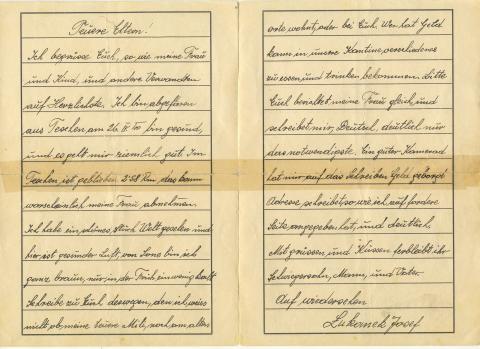 Teuere Eltern!
Ich begrüsse Euch, so wie meine Frau
und Kind, und andere Verwandten
auf Herzlichste. Ich bin abgefahren
aus Teschen am 26. IV. bin gesund,
und es geht mir ziemlich gut. Im
Teschen ist geblieben 258 Rm, das kann
warscheinlich meine Frau abnehmen.
Ich habe ein schönes Stück Welt gesehen und
hier ist gesunder Luft, von Sone bin ich
ganz braun, nur in der Früh ein wenig kalt
Schreibe zu Euch deswegen, den ich weis
nicht ob, meine teuere Mili, noch am alten
orte wohnt, oder bei Euch. Wer hat Geld
kann in unsere Kantine verschiedenes
zu essen und trinken bekommen. Bitte
Euch bezahlt meine Frau gleich, und
schreibet mir, Deutsch, deutlich nur
das notwendigste. Ein guter Kamerad
hat mir auf das schreiben Geld geborgt
Adresse, schreibet so, wie ich auf fordere
Seite angegeben hat, und deutlich.
Mit grüssen und Küssen ferbleibt ihr
Schwegersohn, Mann, und Vater.
Auf wiedersehen
Lukanek Josef